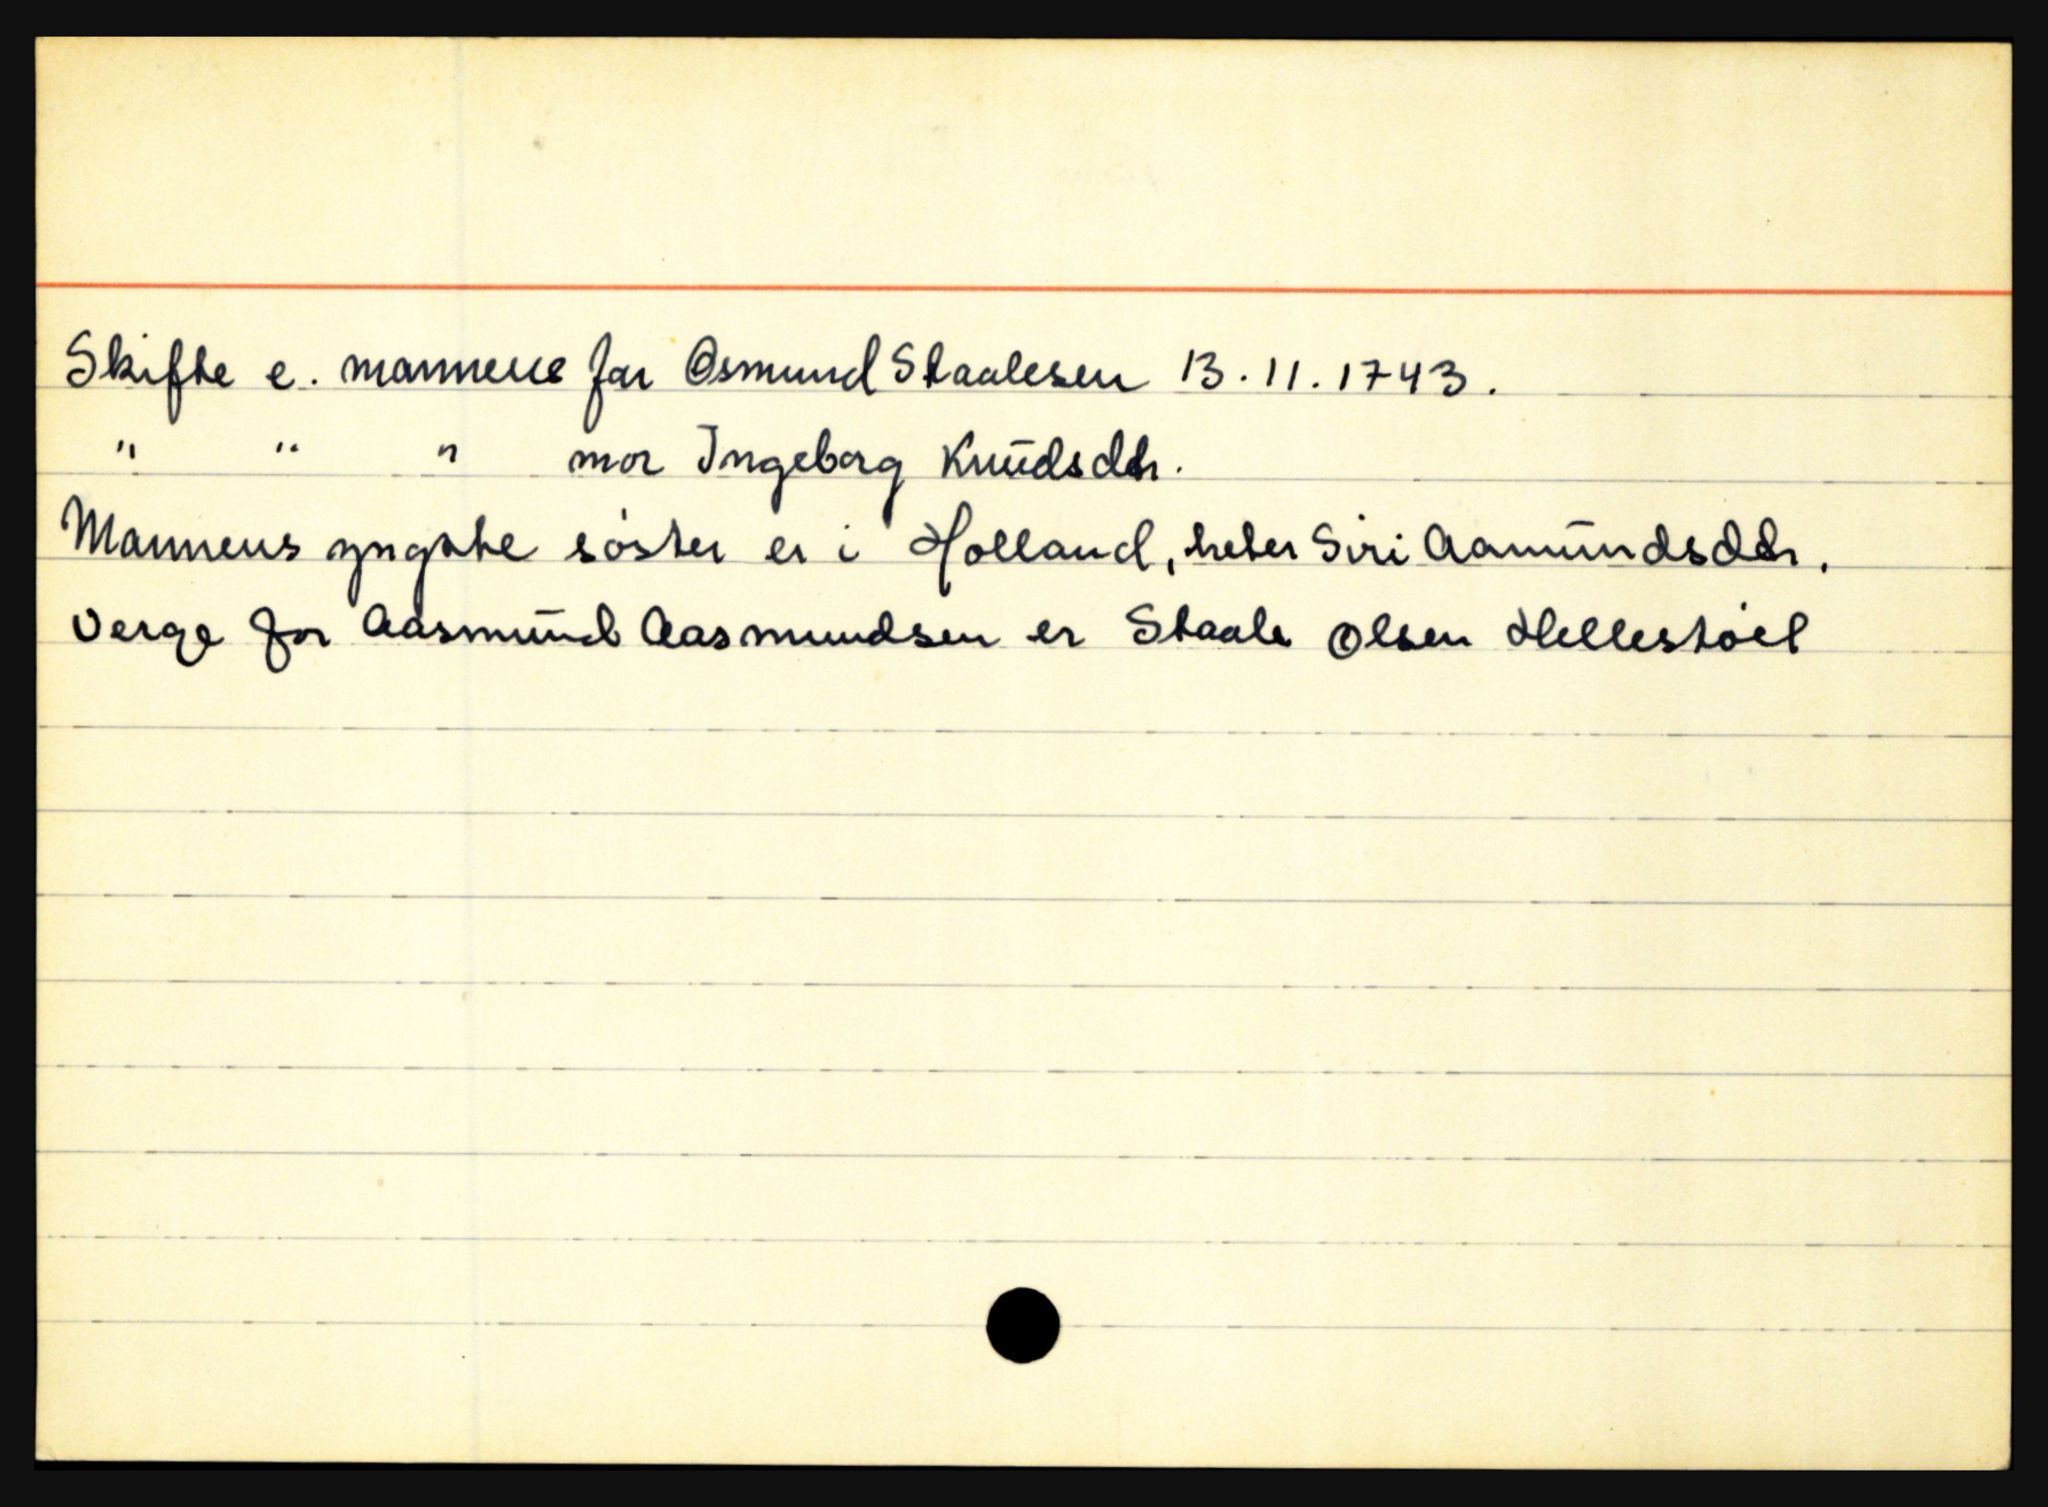 Skifte e. mannens far Osmund Staalesen 13.11.1743.
" " " mor Ingeborg Knudsdtr.
Mannens yngste søster er i Holland, heter Siri Aamundsdtr.
Verge for Aasmund Aasmundsen er Staale Olsen Hellestøel